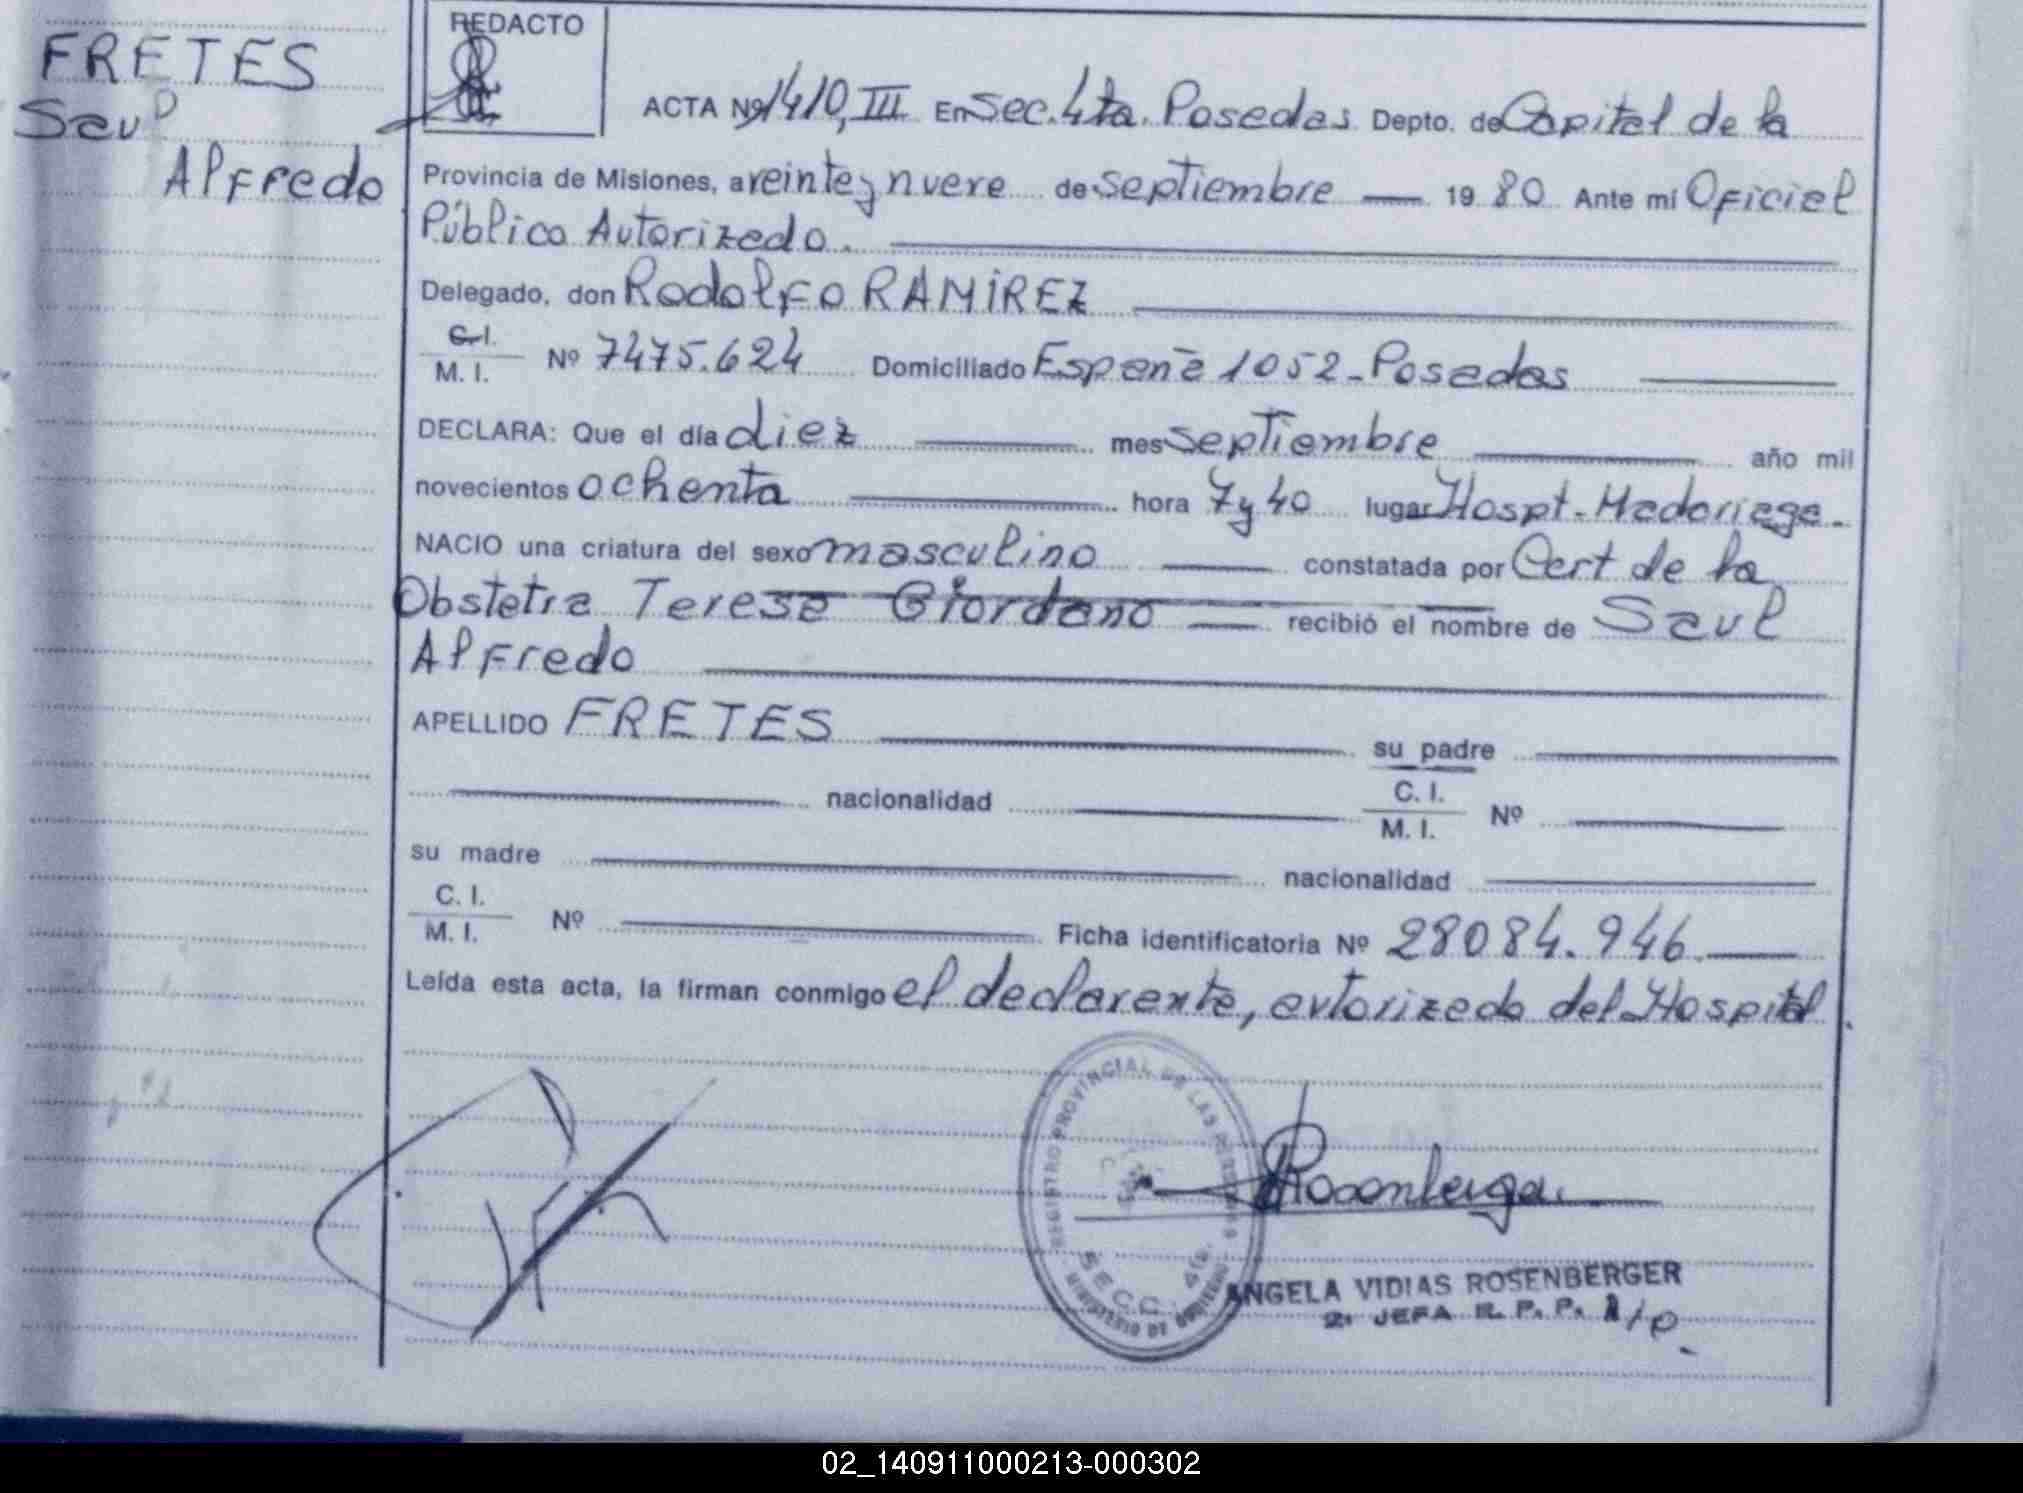 FRETES
Saul
Alfredo
REDACTO
ACTA Nº 1410, III En Sec. 4ta. Posadas Depto. de Capital de la
Provincia de Misiones, a veinte y nueve de septiembre 19 80 Ante mi Oficial
Público Autorizado.
Delegado, don Rodolfo RAMIREZ
C. I.
M. I. Nº 7475.624 Domiciliado España 1052 - Posadas
DECLARA: Que el día diez mes septiembre año mil
novecientos ochenta hora 7 y 40 lugar Hospt. Madariaga.
NACIO una criatura del sexo masculino constatada por Cert de la
Obstetra Teresa Giordano recibió el nombre de Saul
Alfredo
APELLIDO FRETES su padre
nacionalidad C. I.
M. I. Nº
su madre nacionalidad
C. I.
M. I. Nº Ficha identificatoria Nº 28084.946.
Leída esta acta, la firman conmigo el declarante, autorizado del Hospital.
REGISTRO PROVINCIAL DE LAS PERSONAS
SECC. 4ta.
MINISTERIO DE GOBIERNO
ANGELA VIDIAS ROSENBERGER
2ª JEFA R. P. P.
02_140911000213-000302